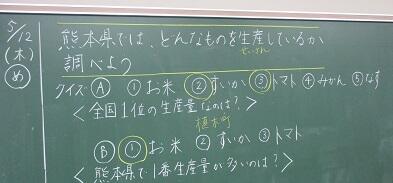 5/12
(木)
め
熊本県では、どんなものを生産しているか
せいさん
調べよう
クイズ Ⓐ ①お米 ②すいか ③トマト ④みかん ⑤なす
<全国1位の生産量なのは?>
植木町
Ⓑ ①お米 ②すいか ③トマト
<熊本県で1番生産量が多いのは?>